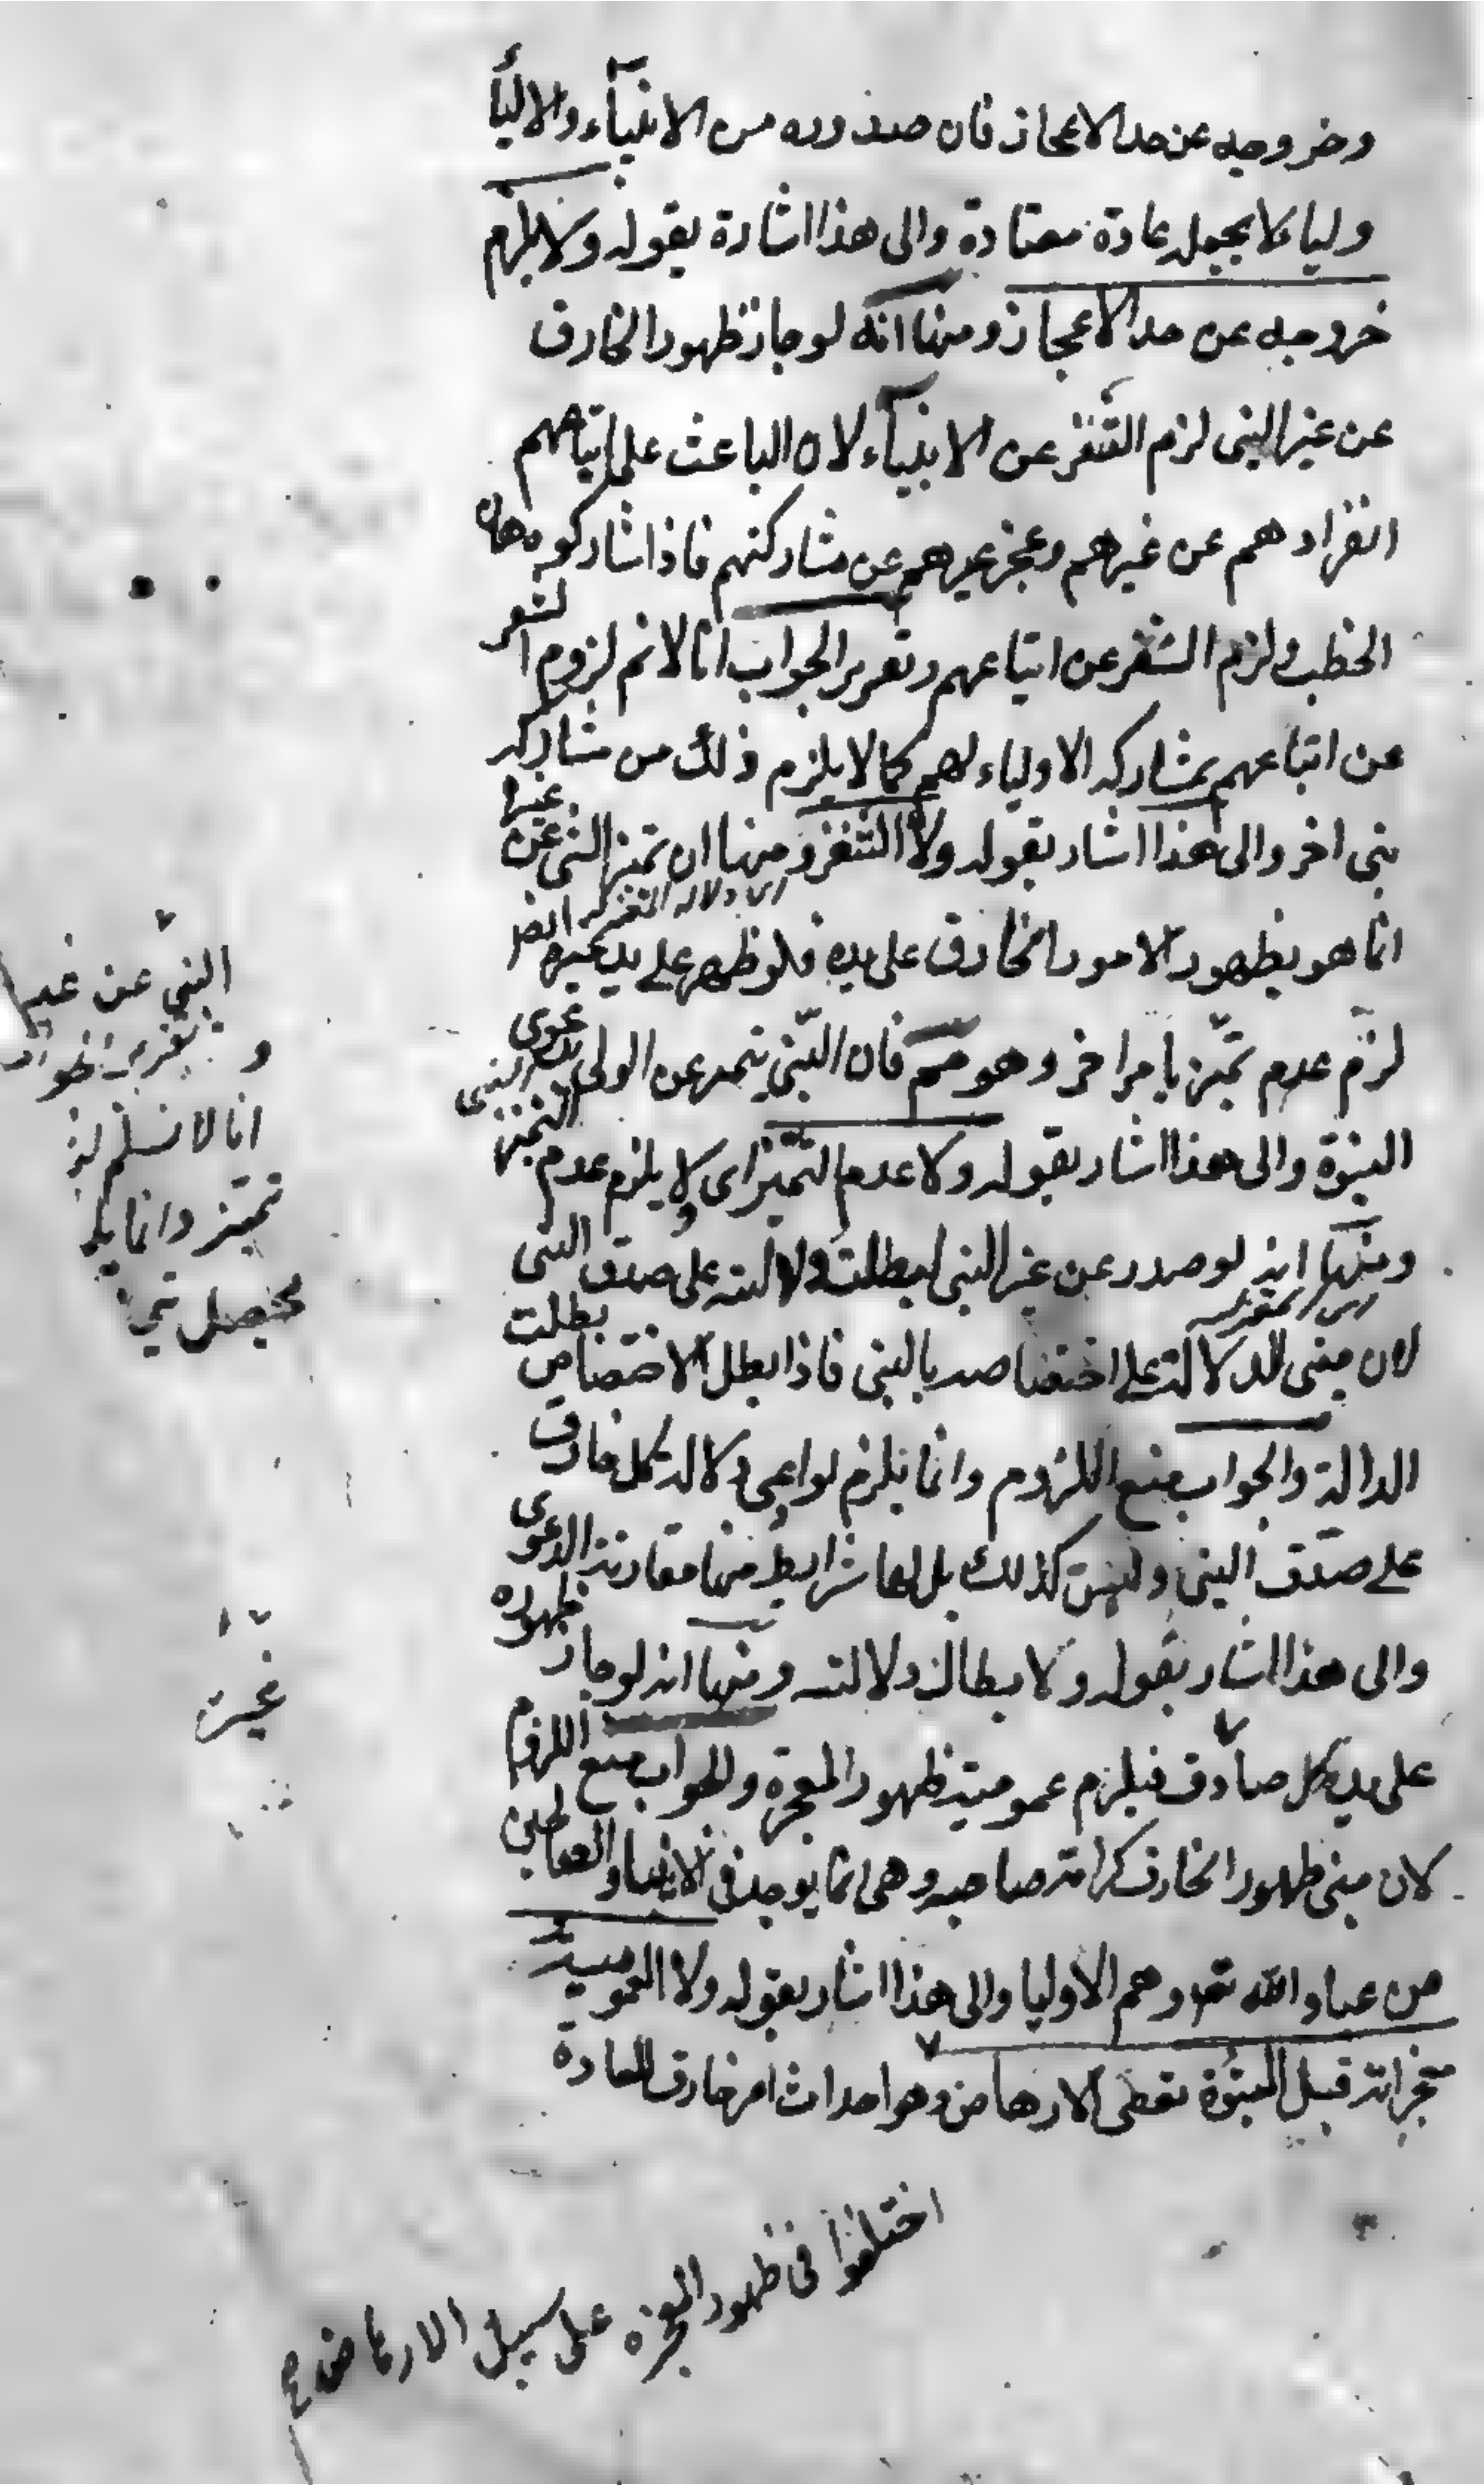 وخروجه عن حد الاعجاز فان صدوره من الانبياء والاليأ
وليا لا يجعله عادة معتادة والى هذا اشارة بقوله ولا يلزم
خروجه عن حد الاعجاز ومنها انه لو جاز ظهور الخارق
عن غير النبى لزم التنفر عن الانبياء لان الباعث على اتباعهم
انفرادهم عن غيرهم وعجز غيرهم عن مشاركتهم فاذا شاركوه هان
الخطب ولزم التنفر عن اتباعهم وتقرير الجواب انا لا نم لزوم التنفر
عن اتباعهم بمشاركة الاولياء لهم كما لا يلزم ذلك من مشاركة
نبى اخر والى هذا اشار بقوله ولا التنفر ومنها ان تميز النبى عن غيره
انما هو بظهور الامور الخارق على يده فلو ظهر على يد غيره
لزم عدم تميز بامر اخر وهو مم فان النبى يتميز عن الولى بدعوى
النبوة والى هذا اشار بقوله ولا عدم التميز اى لا يلزم عدم التميز
ومنها انه لو صدر عن غير النبى لبطلت دلالته على صدق النبى
لان مبنى الدلالة على اختصاصه بالنبى فاذا بطل الاختصاص بطلت
الدالة والجواب منع اللزوم وانما يلزم لو ادعى دلالة كل خارق
على صدق النبى وليس كذلك بل لها شرايط منها مقارنة الدعوى
والى هذا اشار بقوله ولا بطال دلالته ومنها انه لو جاز ظهوره
على يد كل صادق فيلزم عمومية ظهور المعجزة والجواب منع اللزوم
لان مبنى ظهور الخارق كرامة صاحبه وهى انما يوجد فى الانبيا والصالحين
من عباد الله تعه وهم الاوليا والى هذا اشار بقوله ولا العمومية
معجزاته قبل النبوة تعطى الارهاص وهو احداث امر خارق للعادة
النبى عن غير
و تقرير الجواب
انا لا نسلم لز
تميز وانما يلز
يحصل تمي
غيره
اختلفوا فى ظهور المعجزه على سبيل الارهاص